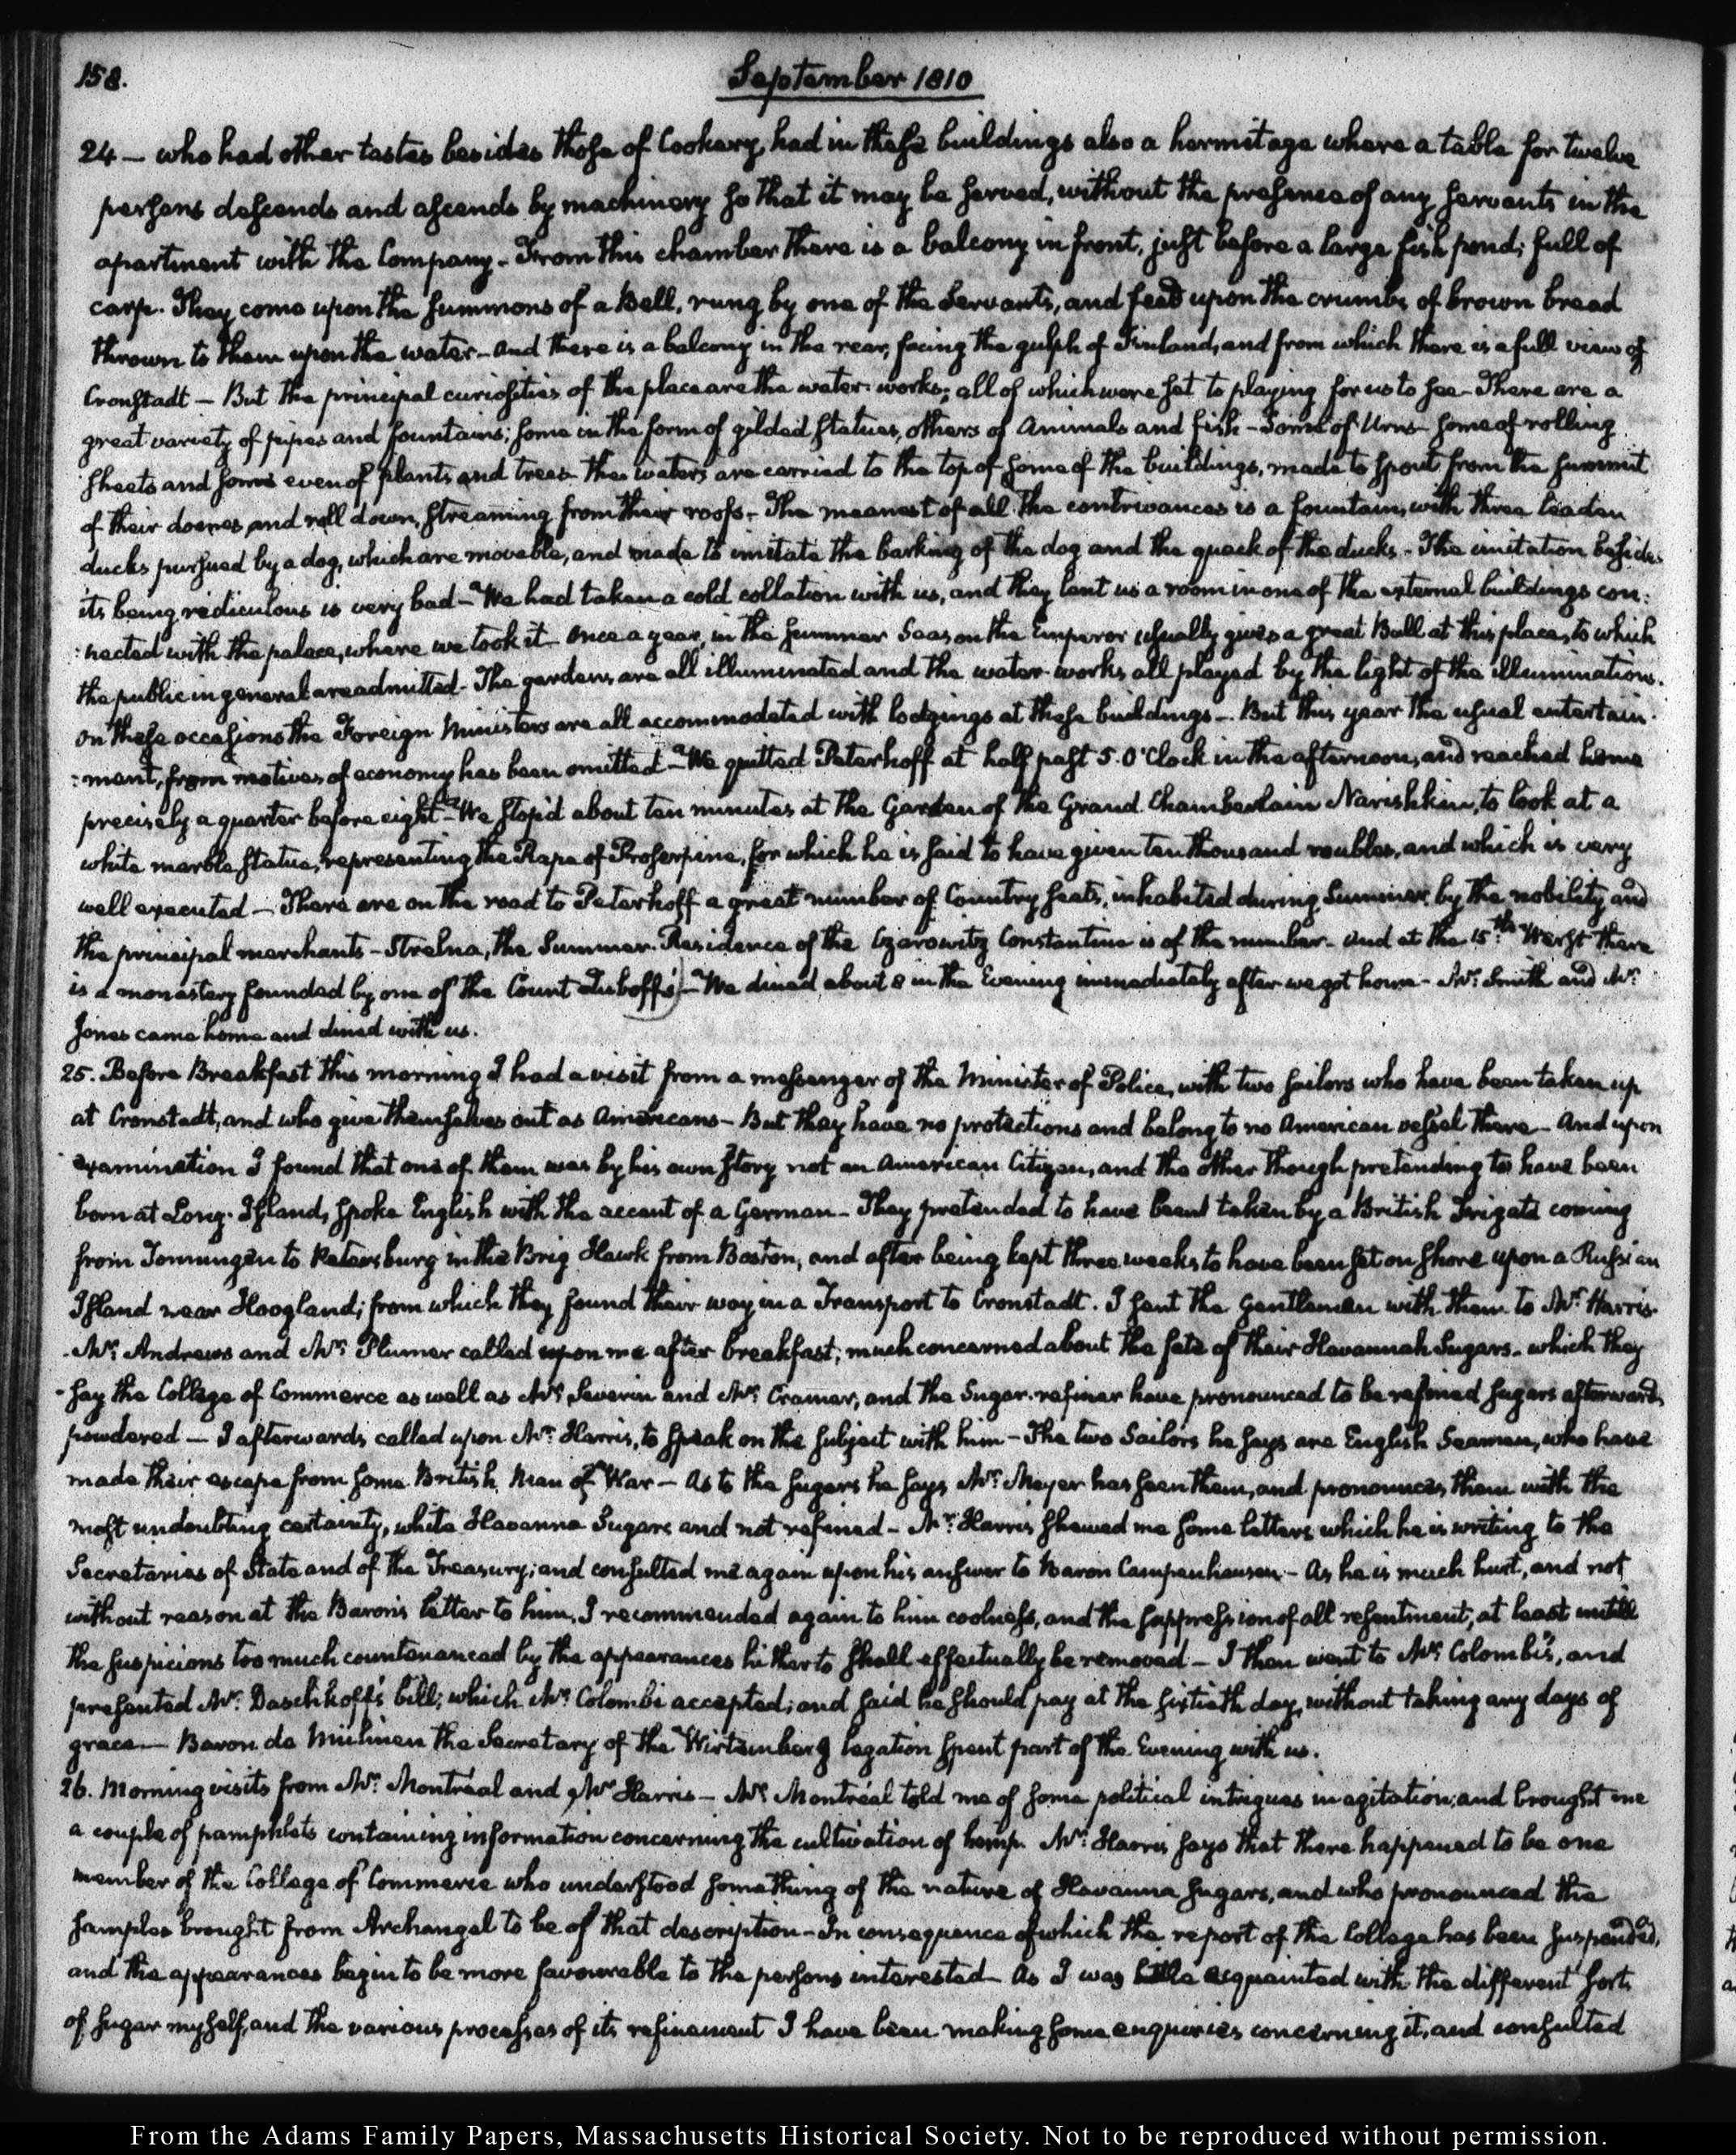 158.
September 1810
24 — who had other tastes besides those of Cookery, had in these buildings also a hermitage where a table for twelve
persons descends and ascends by machinery so that it may be served, without the presence of any servants in the
apartment with the Company — From this chamber there is a balcony in front, just before a large fish pond; full of
carp. They come upon the summons of a Bell, rung by one of the Servants, and feed upon the crumbs of brown bread
thrown to them upon the water — and there is a balcony in the rear, facing the gulph of Finland, and from which there is a full view of
Cronstadt — But the principal curiosities of the place are the water-works; all of which were set to playing for us to see — There are a
great variety of pipes and fountains; some in the form of gilded statues, others of Animals and fish — Some of Urns — some of rolling
sheets and some even of plants and trees — the waters are carried to the top of some of the buildings, made to spout from the summit
of their domes, and roll down, streaming from their roofs — The meanest of all the contrivances is a fountain, with three leaden
ducks pursued by a dog, which are movable, and made to imitate the barking of the dog and the quack of the ducks — The imitation besides
its being rediculous is very bad — We had taken a cold collation with us, and they lent us a room in one of the external buildings con:
:nected with the palace, where we took it — Once a year, in the Summer Season the Emperor usually gives a great Ball at this place, to which
the public in general are admitted — The gardens are all illuminated and the water-works all played by the light of the illuminations.
On these occasions the Foreign Ministers are all accommodated with lodgings at these buildings — But this year the usual entertain:
:ment, from motives of economy has been omitted — We quitted Peterhoff at half past 5. O'Clock in the afternoon, and reached home
precisely a quarter before eight — We stop'd about ten minutes at the Garden of the Grand Chamberlain Narishkin, to look at a
white marble statue, representing the Rape of Proserpine, for which he is said to have given ten thousand roubles, and which is very
well executed — There are on the road to Peterhoff a great number of Country seats, inhabited during Summer by the nobility and
the principal merchants — Strelna, the Summer Residence of the Czarowitz Constantine is of the number — And at the 15th Werst there
is a monastery founded by one of the Count Zuboff's) — We dined about 8 in the Evening immediately after we got home — Mr. Smith and Mr.
Jones came home and dined with us.
25. Before Breakfast this morning I had a visit from a messenger of the Minister of Police, with two sailors who have been taken up
at Cronstadt, and who give themselves out as Americans — But they have no protections and belong to no American vessel there — And upon
examination I found that one of them was by his own story not an American Citizen, and the other though pretending to have been
born at Long-Island, spoke English with the accent of a German — They pretended to have been taken by a British Frigate coming
from Tonningen to Petersburg in the Brig Hawk from Boston, and after being kept three weeks to have been set on shore upon a Russian
Island near Hoogland; from which they found their way in a Transport to Cronstadt. I sent the Gentlemen with them to Mr. Harris.
Mr. Andrews and Mr. Plumer called upon me after breakfast; much concerned about the fate of their Havannah Sugars — which they
say the College of Commerce as well as Mr. Severin and Mr. Cramer, and the Sugar-refiner have pronounced to be refined sugars afterwards
powdered — I afterwards called upon Mr. Harris, to speak on the subject with him — The two Sailors he says are English Seamen, who have
made their escape from some British Man of War — As to the sugars he says Mr. Meyer has seen them, and pronounces them with the
most undoubting certainty, white Havanna Sugars and not refined — Mr. Harris shewed me some letters which he is writing to the
Secretaries of State and of the Treasury; and consulted me again upon his answer to Baron Campenhausen — As he is much hurt, and not
without reason at the Baron's letter to him, I recommended again to him coolness, and the suppression of all resentment, at least untill
the suspicions too much countenanced by the appearances hitherto shall effectually be removed — I then went to Mr. Colombi's, and
presented Mr. Daschkoff's bill; which Mr. Colombi accepted; and said he should pay at the sixtieth day, without taking any days of
grace — Baron de Mulinen the Secretary of the Wirtemberg legation spent part of the Evening with us.
26. Morning visits from Mr. Montréal and Mr. Harris — Mr. Montréal told me of some political intrigues in agitation; and brought me
a couple of pamphlets containing information concerning the cultivation of hemp. Mr. Harris says that there happened to be one
member of the College of Commerce who understood something of the nature of Havanna Sugars, and who pronounced the
samples brought from Archangel to be of that description — In consequence of which the report of the College has been suspended,
and the appearances begin to be more favourable to the persons interested — As I was little acquainted with the different sorts
of sugar myself, and the various processes of its refinement I have been making some enquiries concerning it, and consulted
From the Adams Family Papers, Massachusetts Historical Society. Not to be reproduced without permission.